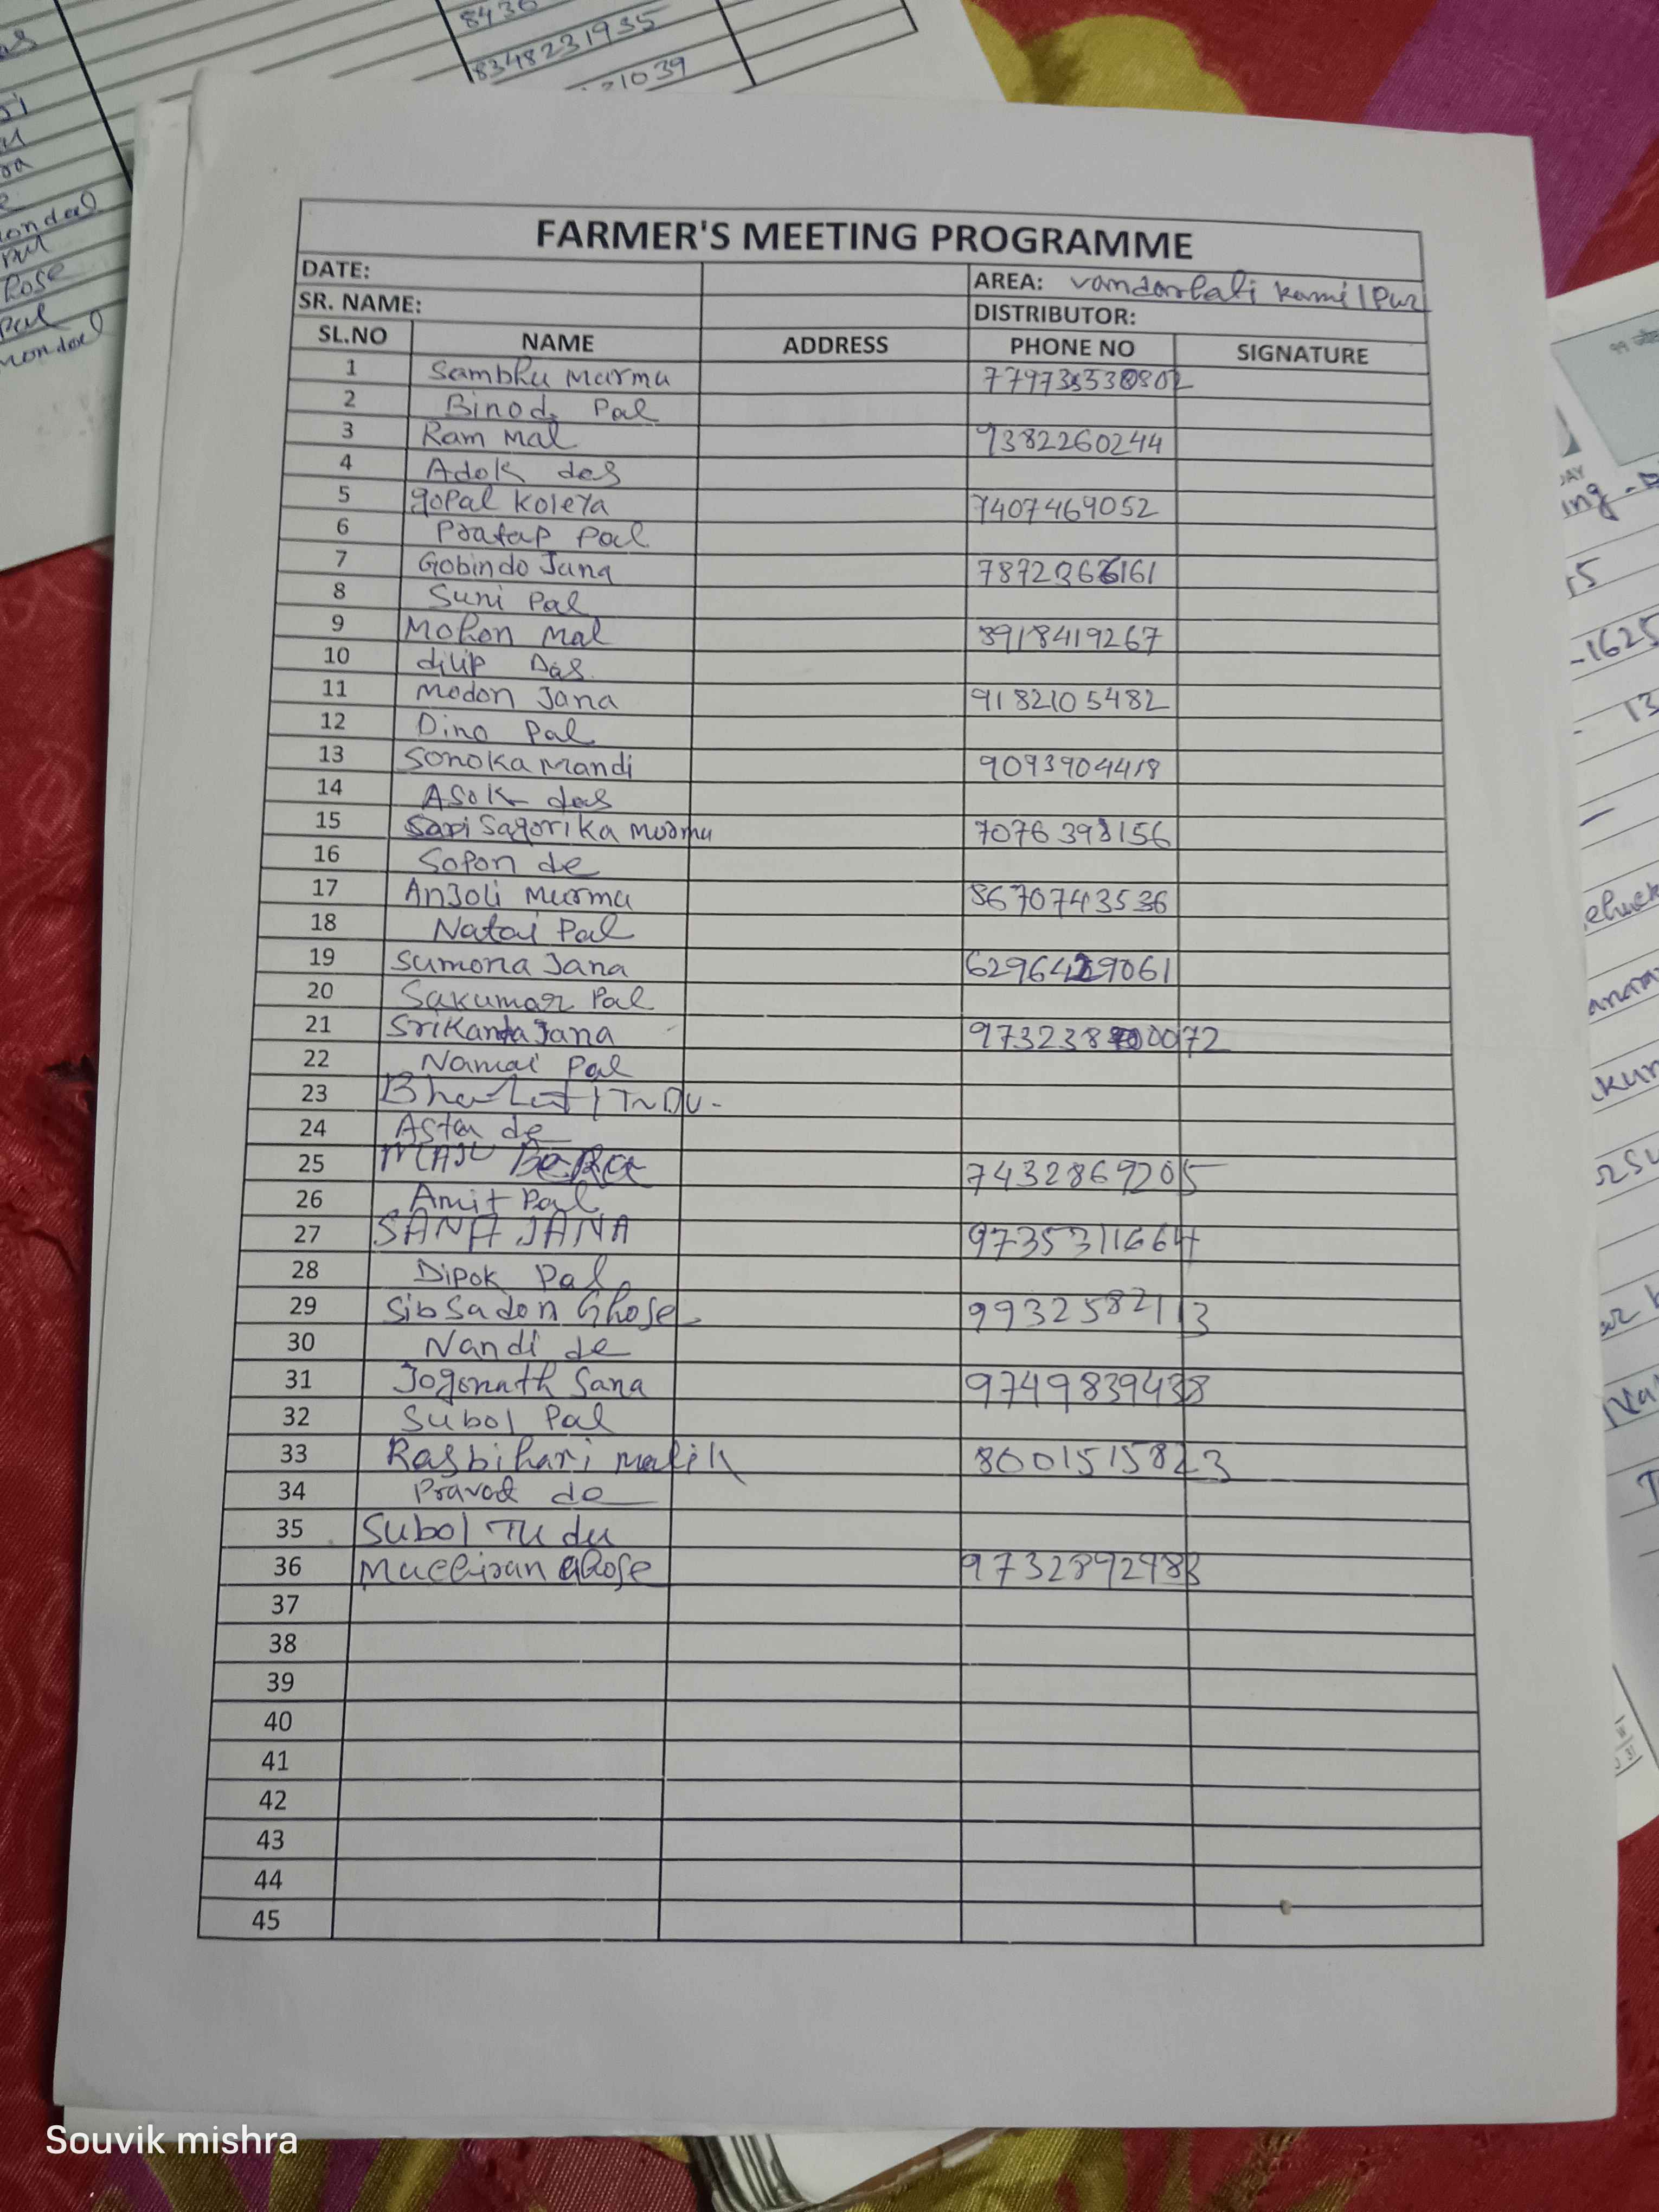 8436
8348231935
21039
ondal
Rose
pal
mondal
FARMER'S MEETING PROGRAMME
DATE: AREA: vandarhati kamilpur
SR. NAME: DISTRIBUTOR:
SL.NO NAME ADDRESS PHONE NO SIGNATURE
1 Sambhu Murmu
2 Binod Pal
3 Ram Mal 9382260244
4 Adok das
5 gopal koleya 7407469052
6 Pratap Pal
7 Gobindo Jana
8 Suni Pal
9 Mohon Mal 8918419267
10 dilip Das
11 Modon Jana 9182105482
12 Dino Pal
13 Sonoka Mandi 9093904418
14 Asok das
15 Sagorika Murmu
16 Sopon de
17 Anjoli Murmu 8670743536
18 Natai Pal
19 Sumona Jana
20 Sakumar Pal
21 Srikanta Jana
22 Namai Pal
23
24 Asta de
25 MAJU BERA 7432869205
26 Amit Pal
27 SANA JANA 9735311664
28 Dipok Pal
29 Sibsadon Ghose 9932582113
30 Nandi de
31 Jogonath Sana 9749839438
32 Subol Pal
33 Rasbihari malik 8001515823
34 Pravat de
35 Subol Tudu
36 Ghose
37
38
39
40
41
42
43
44
45
15
-1625
Souvik mishra